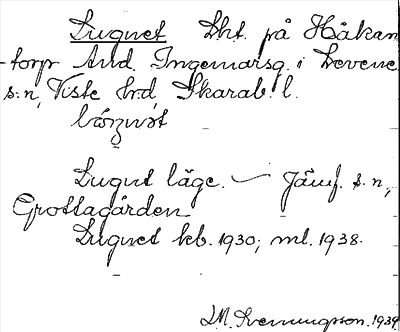 Lugnet Lht. på Håkan
-torp And. Ingemarsg. i Levene
s:n, Viste hrd, Skarab. l.
Lugnt läge. — Jämf. s.n,
Grottagården
Lugnet kb. 1930; ml. 1938.
L.M. Svenungsson. 1939